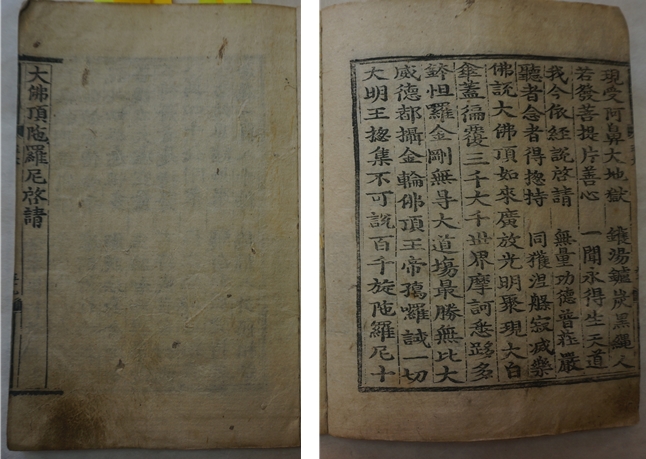 大佛頂陁羅尼啓請
現受阿鼻大地獄 鑊湯鑪炭黑繩人
若發菩提片善心 一聞永得生天道
我今依經說啓請 無量功德普莊嚴
聽者念者得摠持 同獲涅盤寂滅樂
佛說大佛頂如來廣放光明聚現大白
傘蓋徧覆三千大千世界摩訶悉跢多
鉢怛羅金剛無㝵大道塲最勝無比大
威德都攝金輪佛頂王帝囉誐一切
大明王摠集不可說百千旋陁羅尼十